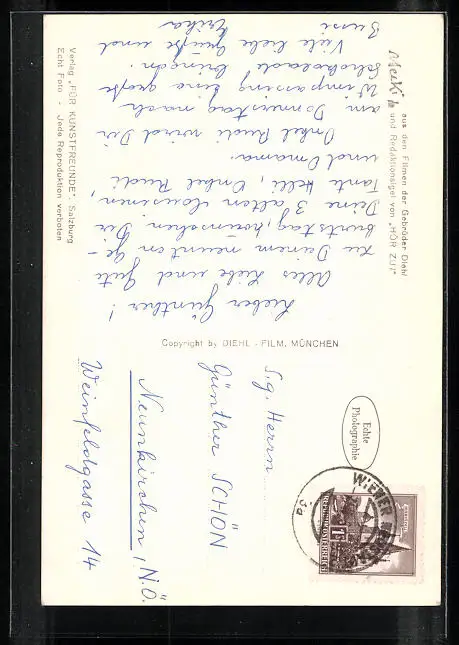 Mecki
aus den Filmen der Gebrüder Diehl
und Redaktionsigel von „HÖR ZU!"
Lieber Günther!
Alles Liebe und Gute
zu Deinem neunten Ge-
burtstag, wünschen Dir
Deine 3 alten
Tante Helli, Onkel Rudi,
und Omama.
Onkel Rudi wird Dir
am Donnerstag nach
Wimpassing eine große
Schokolade bringen.
Viele liebe Grüße und
Bussi Erika
Verlag „FÜR KUNSTFREUNDE", Salzburg
Echt Foto - Jede Reproduktion verboten
Copyright by DIEHL - FILM, MÜNCHEN
Echte
Photographie
WIENER
3a
1S
REPUBLIK ÖSTERREICH
S.g. Herrn
Günther SCHÖN
Neunkirchen, N.Ö.
Weinfeldgasse 14